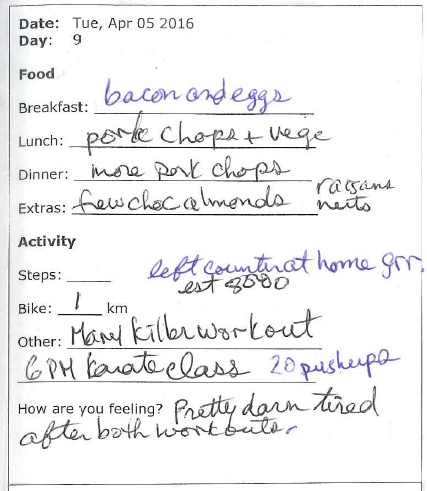 Date: Tue, Apr 05 2016
Day: 9
Food
Breakfast: bacon and eggs
Lunch: pork chops + vege
Dinner: more pork chops
Extras: few choc almonds raisans nuts
Activity
Steps: left counter at home grr.
est 3500
Bike: 1 km
Other: Killer workout
6 PM Karate class 20 pushups
How are you feeling? Pretty darn tired
after both workouts.